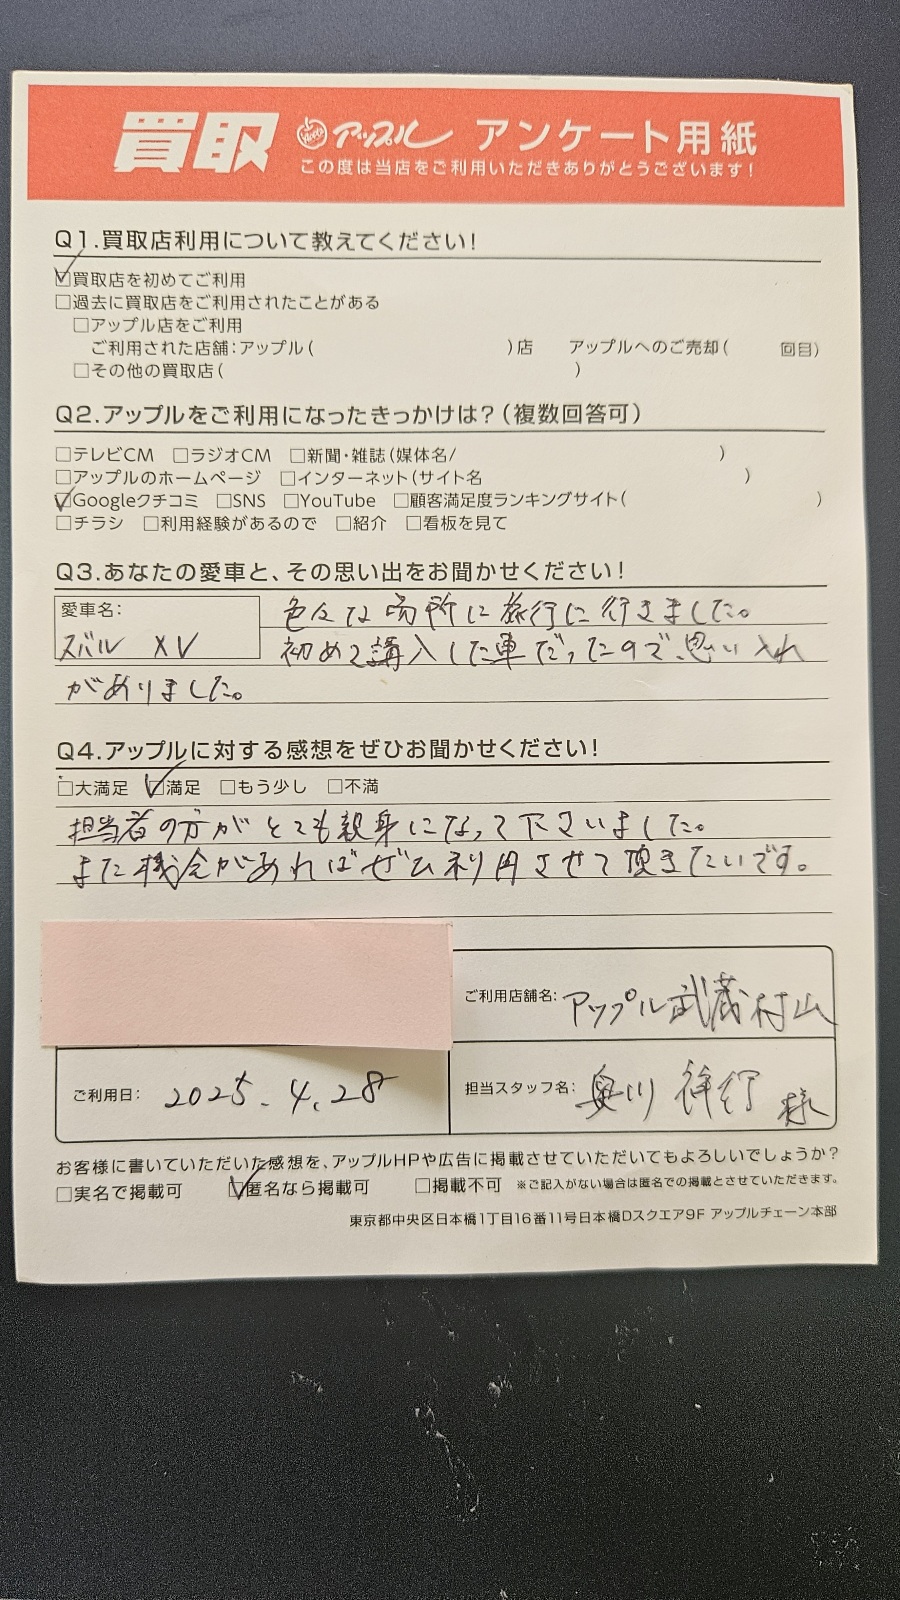 買取 アップル アンケート用紙
この度は当店をご利用いただきありがとうございます!
Q1.買取店利用について教えてください!
☑買取店を初めてご利用
□過去に買取店をご利用されたことがある
□アップル店をご利用
ご利用された店舗:アップル( )店 アップルへのご売却( 回目)
□その他の買取店( )
Q2.アップルをご利用になったきっかけは?(複数回答可)
□テレビCM □ラジオCM □新聞・雑誌(媒体名/ )
□アップルのホームページ □インターネット(サイト名 )
☑Googleクチコミ □SNS □YouTube □顧客満足度ランキングサイト( )
□チラシ □利用経験があるので □紹介 □看板を見て
Q3.あなたの愛車と、その思い出をお聞かせください!
愛車名:
スバル XV
色々な場所に旅行に行きました。
初めて購入した車だったので、思い入れ
がありました。
Q4.アップルに対する感想をぜひお聞かせください!
□大満足 ☑満足 □もう少し □不満
担当者の方がとても親身になって下さいました。
また機会があればぜひ利用させて頂きたいです。
ご利用店舗名:アップル武蔵村山
ご利用日: 2025.4.28
担当スタッフ名:奥川 祥行 様
お客様に書いていただいた感想を、アップルHPや広告に掲載させていただいてもよろしいでしょうか?
□実名で掲載可 ☑匿名なら掲載可 □掲載不可 ※ご記入がない場合は匿名での掲載とさせていただきます。
東京都中央区日本橋1丁目16番11号日本橋Dスクエア9F アップルチェーン本部